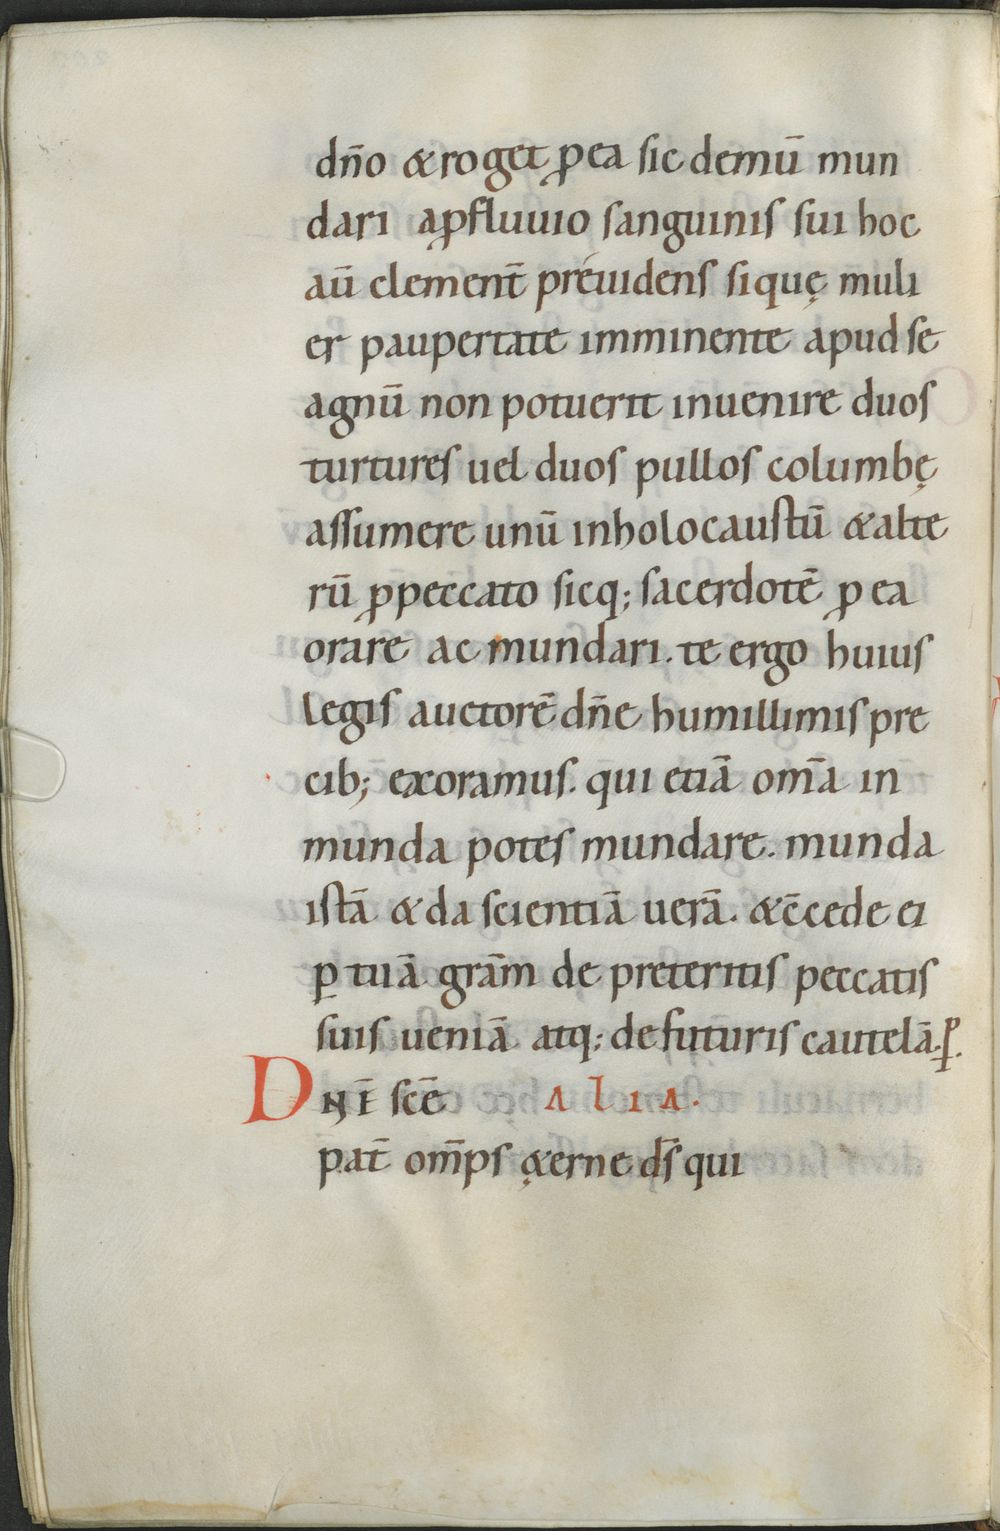 dn̄o & roget ꝓ ea sic demū mun
dari a ꝓfluuio sanguinis sui hoc
aū clement̄ preuidens si quę muli
er paupertate imminente apud se
agnū non potuerit inuenire duos
turtures uel duos pullos columbę
assumere unū in holocaustū & alte
rū ꝓ peccato sicq; sacerdotē ꝓ ea
orare ac mundari. te ergo huius
legis auctorē dn̄e humillimis pre
cib; exoramus. qui etiā om̄a in
munda potes mundare. munda
istā & da scientiā uerā. & c̄cede ei
ꝑ tuā grām de preteritis peccatis
suis ueniā atq; de futuris cautelā. ꝑ.
DNĒ scē ALIA.
pat̄ om̄ps ę&erne ds̄ qui